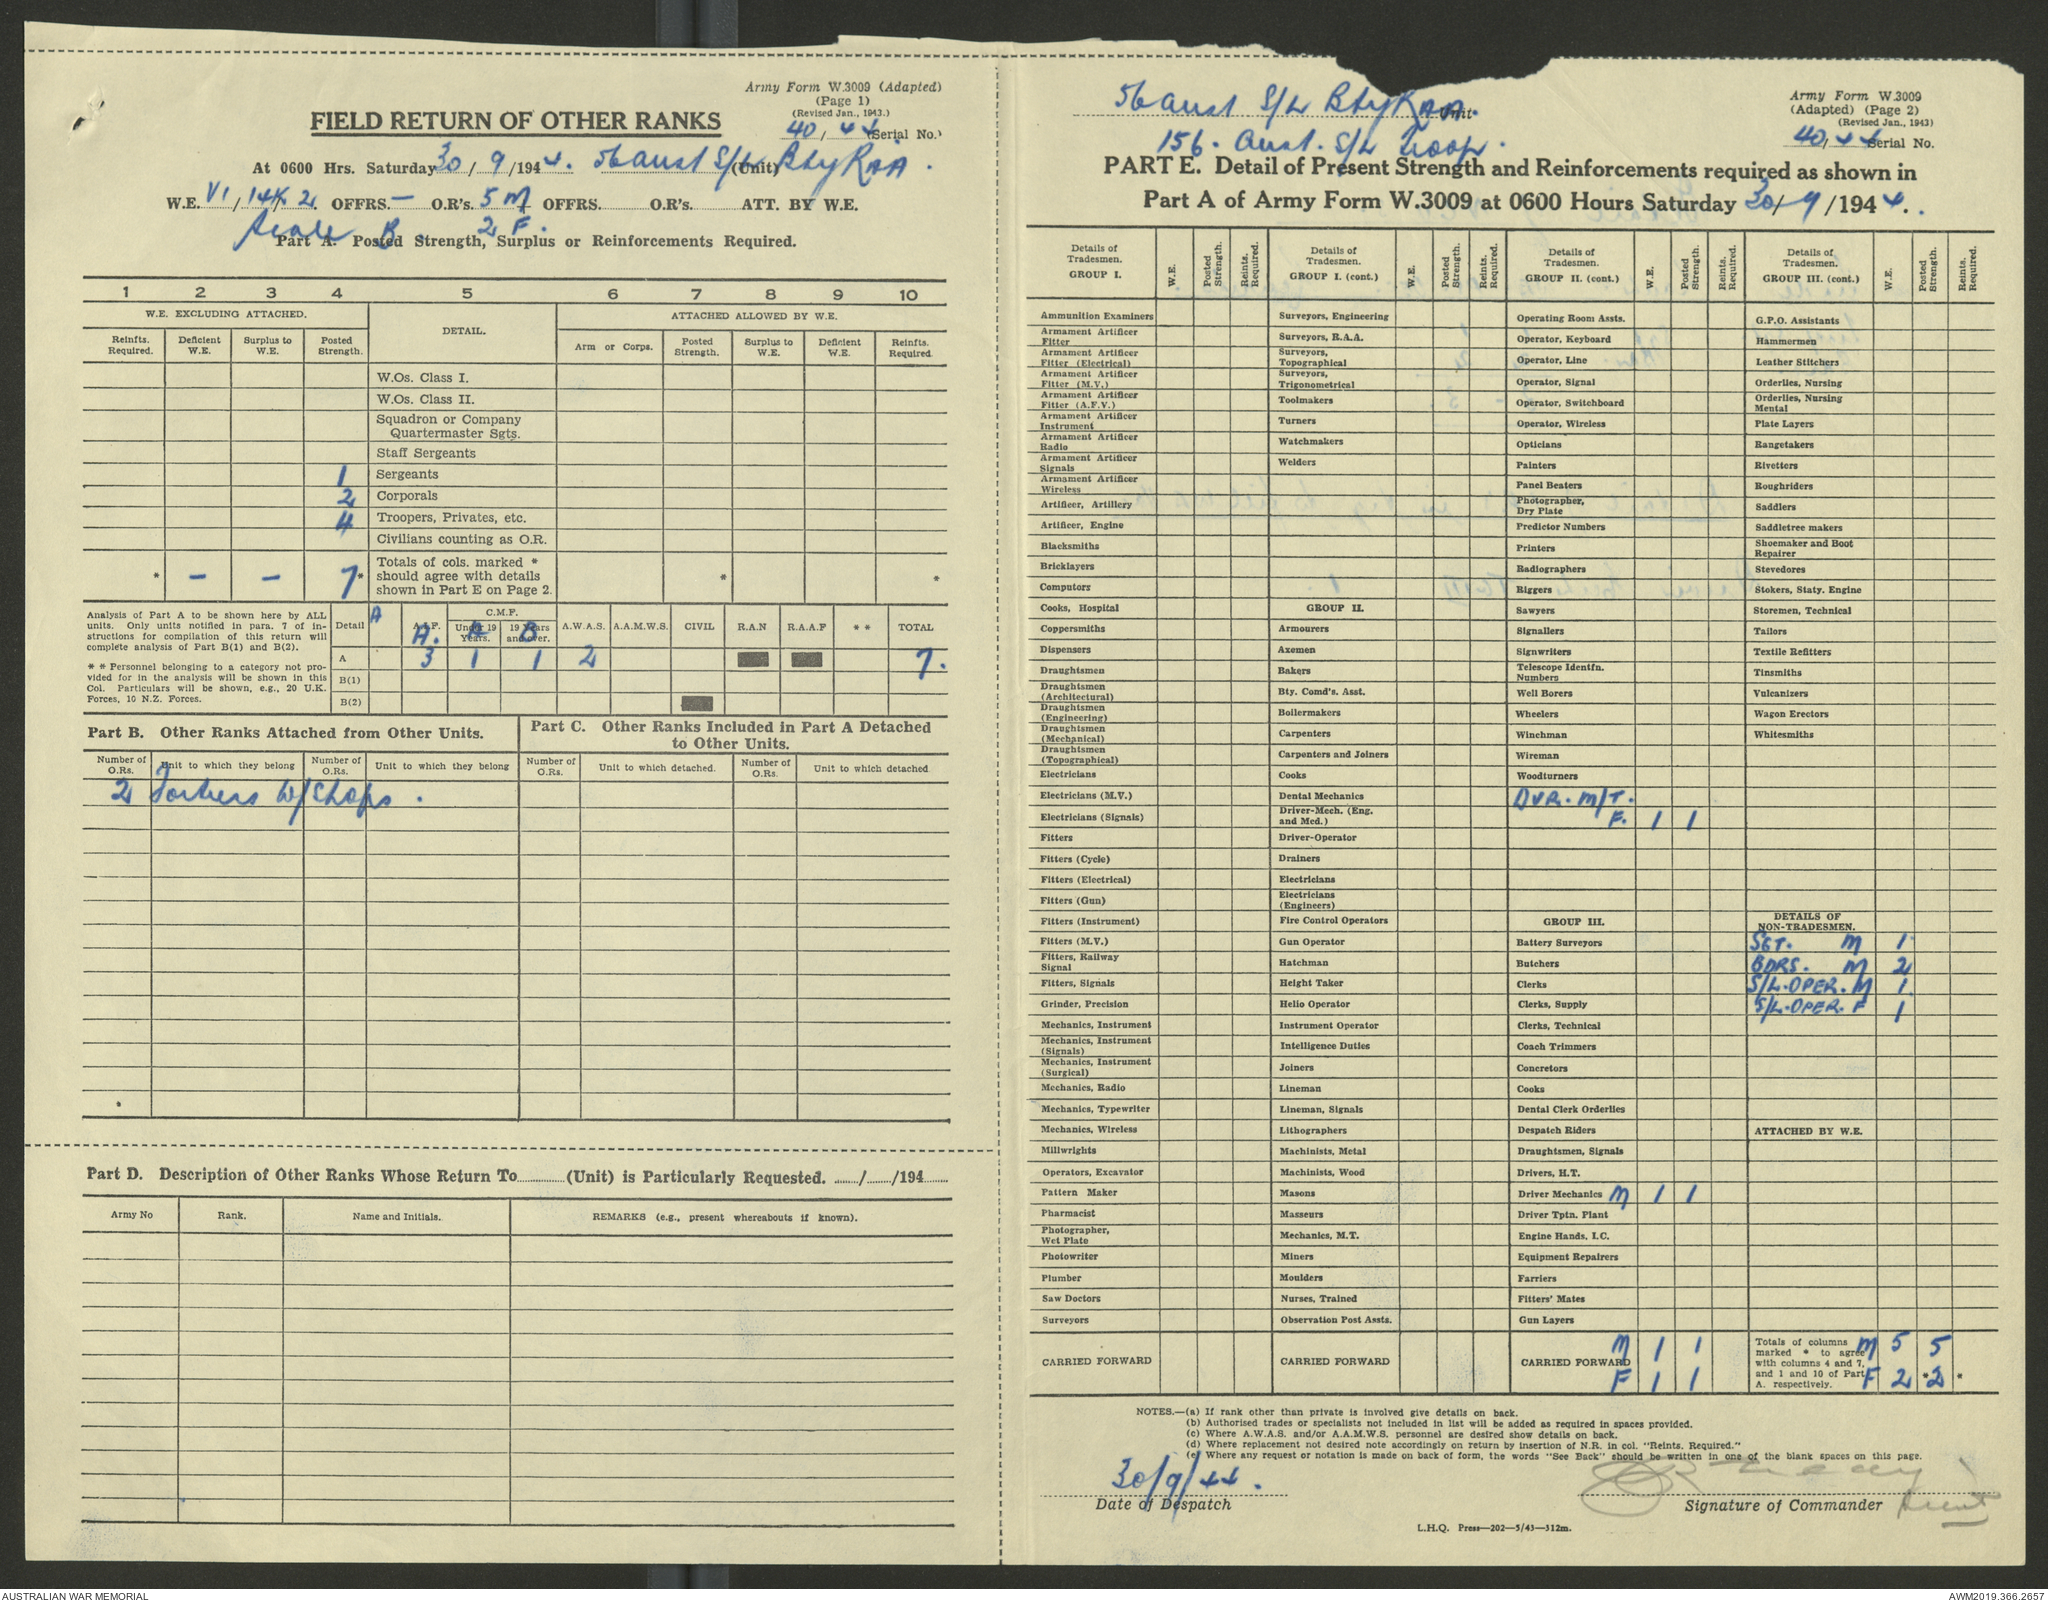 Army Form W.3009 (Adapted)
(Page 1)
(Revised Jan., 1943.)
FIELD RETURN OF OTHER RANKS
40/44 (Serial No.)
At 0600 Hrs. Saturday 30/9/1944. 56 Aust S/L Bty RAA. (Unit)
W.E. VI/14K/2. OFFRS. — O.R's. 5 M OFFRS. O.R's. ATT. BY W.E.
Scale B. 2 F.
Part A. Posted Strength, Surplus or Reinforcements Required.
1 2 3 4 5 6 7 8 9 10
W.E. EXCLUDING ATTACHED. DETAIL. ATTACHED ALLOWED BY W.E.
Reinfts. Required. Deficient W.E. Surplus to W.E. Posted Strength. Arm or Corps. Posted Strength. Surplus to W.E. Deficient W.E. Reinfts. Required.
W.Os. Class I.
W.Os. Class II.
Squadron or Company
Quartermaster Sgts.
Staff Sergeants
1 Sergeants
2 Corporals
4 Troopers, Privates, etc.
Civilians counting as O.R.
* — — 7* Totals of cols. marked * should agree with details shown in Part E on Page 2. * *
Analysis of Part A to be shown here by ALL
units. Only units notified in para. 7 of in-
structions for compilation of this return will
complete analysis of Part B(1) and B(2).
* * Personnel belonging to a category not pro-
vided for in the analysis will be shown in this
Col. Particulars will be shown, e.g., 20 U.K.
Forces, 10 N.Z. Forces.
Detail A A.I.F. C.M.F. Under 19 Years. 19 Years and over. A.W.A.S. A.A.M.W.S. CIVIL R.A.N R.A.A.F * * TOTAL
A. A B
A 3 1 1 2 7.
B(1)
B(2)
Part B. Other Ranks Attached from Other Units.
Part C. Other Ranks Included in Part A Detached
to Other Units.
Number of O.Rs. Unit to which they belong Number of O.Rs. Unit to which they belong Number of O.Rs. Unit to which detached. Number of O.Rs. Unit to which detached
2 Fortress W/Shops.
Part D. Description of Other Ranks Whose Return To (Unit) is Particularly Requested. / /194
Army No Rank. Name and Initials. REMARKS (e.g., present whereabouts if known).
56 Aust S/L Bty RAA. Unit
156. Aust. S/L Troop.
Army Form W.3009
(Adapted) (Page 2)
(Revised Jan., 1943)
40/44 Serial No.
PART E. Detail of Present Strength and Reinforcements required as shown in
Part A of Army Form W.3009 at 0600 Hours Saturday 30/9/1944.
Details of Tradesmen. GROUP I. W.E. Posted Strength. Reints. Required.
Ammunition Examiners
Armament Artificer Fitter
Armament Artificer Fitter (Electrical)
Armament Artificer Fitter (M.V.)
Armament Artificer Fitter (A.F.V.)
Armament Artificer Instrument
Armament Artificer Radio
Armament Artificer Signals
Armament Artificer Wireless
Artificer, Artillery
Artificer, Engine
Blacksmiths
Bricklayers
Computors
Cooks, Hospital
Coppersmiths
Dispensers
Draughtsmen
Draughtsmen (Architectural)
Draughtsmen (Engineering)
Draughtsmen (Mechanical)
Draughtsmen (Topographical)
Electricians
Electricians (M.V.)
Electricians (Signals)
Fitters
Fitters (Cycle)
Fitters (Electrical)
Fitters (Gun)
Fitters (Instrument)
Fitters (M.V.)
Fitters, Railway Signal
Fitters, Signals
Grinder, Precision
Mechanics, Instrument
Mechanics, Instrument (Signals)
Mechanics, Instrument (Surgical)
Mechanics, Radio
Mechanics, Typewriter
Mechanics, Wireless
Millwrights
Operators, Excavator
Pattern Maker
Pharmacist
Photographer, Wet Plate
Photowriter
Plumber
Saw Doctors
Surveyors
CARRIED FORWARD
Details of Tradesmen. GROUP I. (cont.) W.E. Posted Strength. Reints. Required.
Surveyors, Engineering
Surveyors, R.A.A.
Surveyors, Topographical
Surveyors, Trigonometrical
Toolmakers
Turners
Watchmakers
Welders
GROUP II.
Armourers
Axemen
Bakers
Bty. Comd's. Asst.
Boilermakers
Carpenters
Carpenters and Joiners
Cooks
Dental Mechanics
Driver-Mech. (Eng. and Med.)
Driver-Operator
Drainers
Electricians
Electricians (Engineers)
Fire Control Operators
Gun Operator
Hatchman
Height Taker
Helio Operator
Instrument Operator
Intelligence Duties
Joiners
Lineman
Lineman, Signals
Lithographers
Machinists, Metal
Machinists, Wood
Masons
Masseurs
Mechanics, M.T.
Miners
Moulders
Nurses, Trained
Observation Post Assts.
CARRIED FORWARD
Details of Tradesmen. GROUP II. (cont.) W.E. Posted Strength. Reints. Required.
Operating Room Assts.
Operator, Keyboard
Operator, Line
Operator, Signal
Operator, Switchboard
Operator, Wireless
Opticians
Painters
Panel Beaters
Photographer, Dry Plate
Predictor Numbers
Printers
Radiographers
Riggers
Sawyers
Signallers
Signwriters
Telescope Identfn. Numbers
Well Borers
Wheelers
Winchman
Wireman
Woodturners
DVR. M/T.
F. 1 1
GROUP III.
Battery Surveyors
Butchers
Clerks
Clerks, Supply
Clerks, Technical
Coach Trimmers
Concretors
Cooks
Dental Clerk Orderlies
Despatch Riders
Draughtsmen, Signals
Drivers, H.T.
Driver Mechanics M 1 1
Driver Tptn. Plant
Engine Hands, I.C.
Equipment Repairers
Farriers
Fitters' Mates
Gun Layers
M 1 1
CARRIED FORWARD
F 1 1
Details of Tradesmen. GROUP III. (cont.) W.E. Posted Strength. Reints. Required.
G.P.O. Assistants
Hammermen
Leather Stitchers
Orderlies, Nursing
Orderlies, Nursing Mental
Plate Layers
Rangetakers
Rivetters
Roughriders
Saddlers
Saddletree makers
Shoemaker and Boot Repairer
Stevedores
Stokers, Staty. Engine
Storemen, Technical
Tailors
Textile Refitters
Tinsmiths
Vulcanizers
Wagon Erectors
Whitesmiths
DETAILS OF NON-TRADESMEN.
SGT. M 1
BDRS. M 2
S/L.OPER. M 1
S/L.OPER. F 1
ATTACHED BY W.E.
Totals of columns marked * to agree with columns 4 and 7, and 1 and 10 of Part A. respectively.
M 5 5
F 2 *2 *
NOTES.—(a) If rank other than private is involved give details on back.
(b) Authorised trades or specialists not included in list will be added as required in spaces provided.
(c) Where A.W.A.S. and/or A.A.M.W.S. personnel are desired show details on back.
(d) Where replacement not desired note accordingly on return by insertion of N.R. in col. "Reints. Required."
(e) Where any request or notation is made on back of form, the words "See Back" should be written in one of the blank spaces on this page.
30/9/44.
Date of Despatch
Signature of Commander Lieut
L.H.Q. Press—202—5/43—312m.
AUSTRALIAN WAR MEMORIAL
AWM2019.366.2657